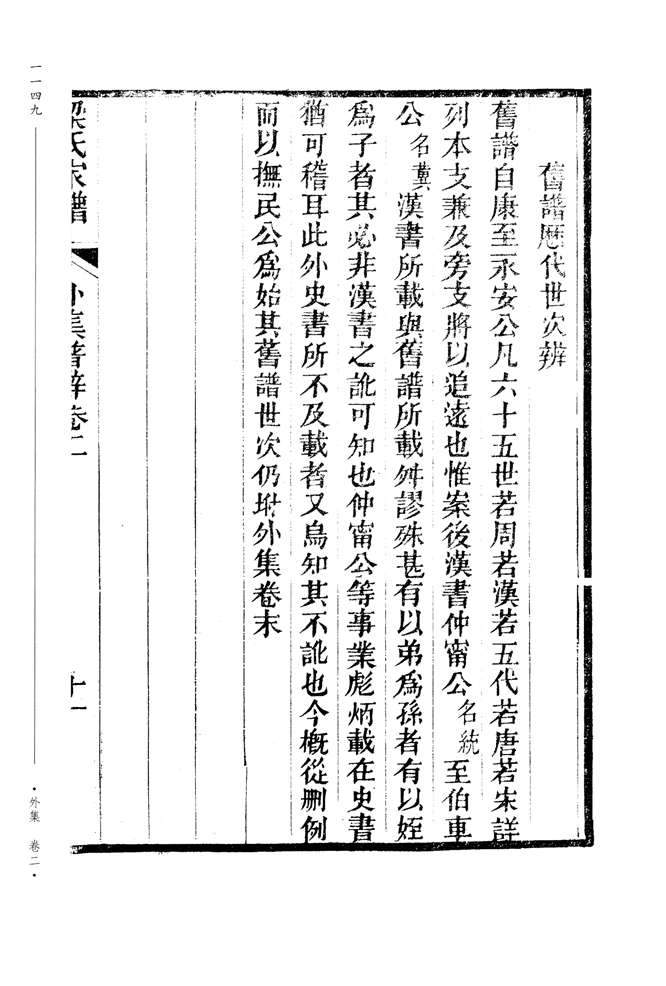 舊譜歷代世次辨
舊譜自康至永安公凡六十五世若周若漢若五代若唐若宋詳
列本支兼及旁支將以追遠也惟案後漢書仲甯公名統至伯車
公名冀漢書所載與舊譜所載舛謬殊甚有以弟爲孫者有以姪
爲子者其必非漢書之訛可知也仲甯公等事業彪炳載在史書
猶可稽耳此外史書所不及載者又烏知其不訛也今槪從刪例
而以撫民公爲始其舊譜世次仍坿外集卷末
梁氏家譜 外集譜辨卷二 十一
一一四九
·外集 卷二·